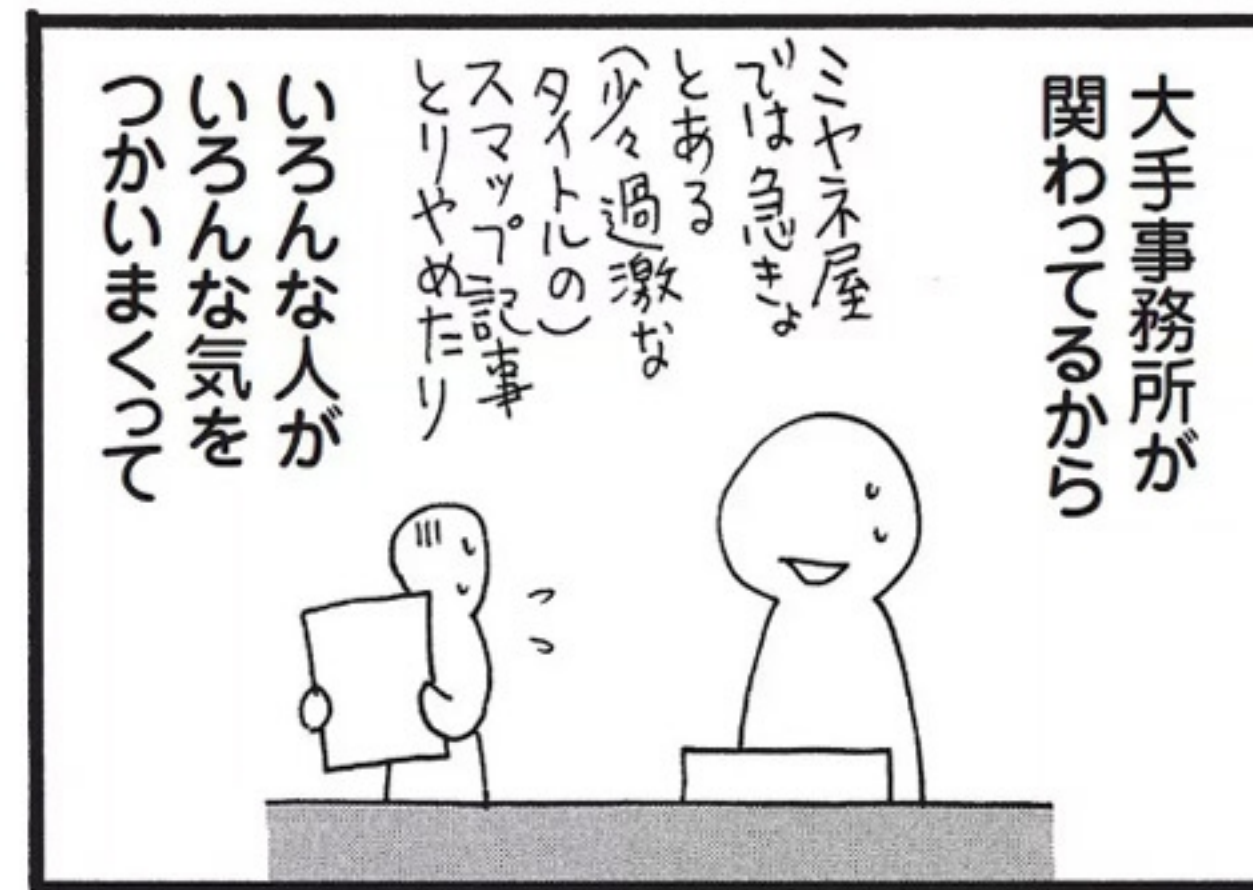 大手事務所が
関わってるから
ミヤネ屋
では急きょ
とある
（少々過激な
タイトルの）
スマップ記事
とりやめたり
いろんな人が
いろんな気を
つかいまくって